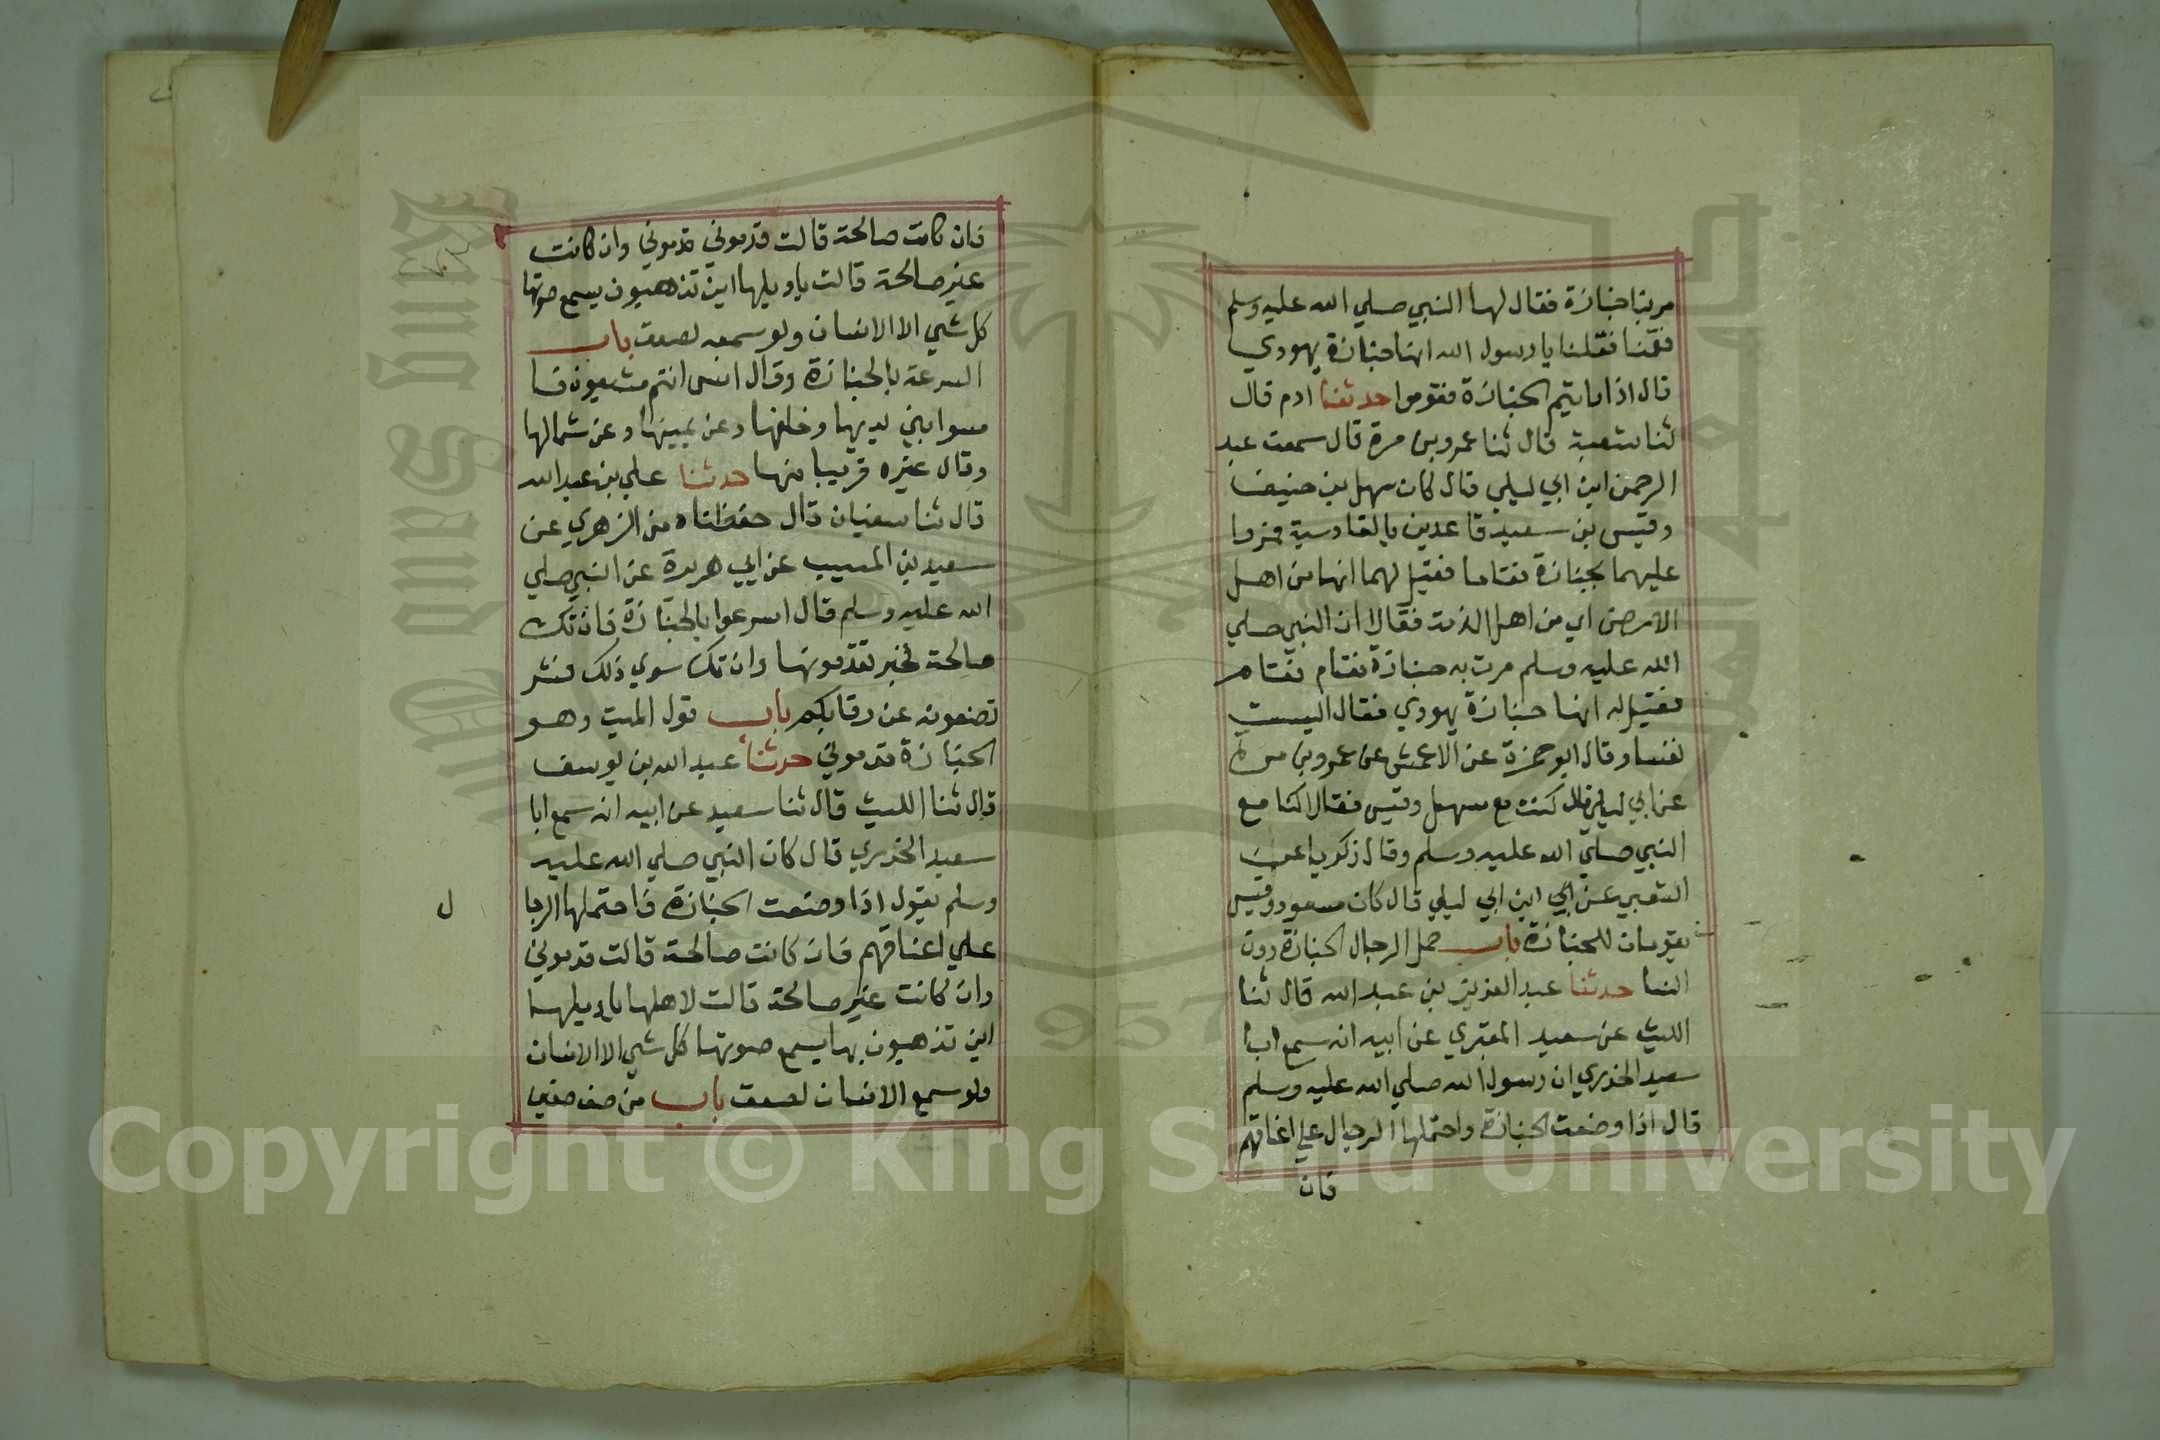 مر بنا جنازة فقال لها النبي صلي الله عليه وسلم
فقمنا فقلنا يا رسول الله انها جنازة يهودي
قال اذا رايتم الجنازة فقوموا حدثنا ادم قال
ثنا شعبة قال ثنا عمرو بن مرة قال سمعت عبد
الرحمن ابن ابي ليلي قال كان سهل بن حنيف
وقيس بن سعيد قاعدين بالقادسية فمروا
عليهما بجنازة فقاما فقيل لهما انها من اهل
الارض اي من اهل الذمة فقالا ان النبي صلي
الله عليه وسلم مرت به جنازة فقام فقام
فقيل له انها جنازة يهودي فقال اليست
نفسا وقال ابو حمزة عن الاعمش عن عمرو بن مرة
عن ابي ليلي قال كنت مع سهل وقيس فقالا كنا مع
النبي صلي الله عليه وسلم وقال زكريا عن
الشعبي عن ابي ابن ابي ليلي قال كان مسعود وقيس
يقومان للجنازة باب حمل الرجال الجنازة دون
النسا حدثنا عبد العزيز بن عبد الله قال ثنا
الليث عن سعيد المقبري عن ابيه انه سمع ابا
سعيد الخدري ان رسول الله صلي الله عليه وسلم
قال اذا وضعت الجنازة واحتملها الرجال علي اعناقهم
فان
فان كانت صالحة قالت قدموني قدموني وان كانت
غير صالحة قالت يا ويلها اين تذهبون يسمع صوتها
كل شي الا الانسان ولو سمعه لصعق باب
السرعة بالجنازة وقال انس انتم مشيعون فا
مسوا بين يديها وخلفها وعن يمينها وعن شمالها
وقال غيره قريبا منها حدثنا علي بن عبد الله
قال ثنا سفيان قال حفظناه من الزهري عن
سعيد بن المسيب عن ابي هريرة عن النبي صلي
الله عليه وسلم قال اسرعوا بالجنازة فان تك
صالحة فخير تقدمونها وان تك سوي ذلك فشر
تضعونه عن رقابكم باب قول الميت وهو
الجنازة قدموني حدثنا عبد الله بن يوسف
قال ثنا الليث قال ثنا سعيد عن ابيه انه سمع ابا
سعيد الخدري قال كان النبي صلي الله عليه
وسلم يقول اذا وضعت الجنازة فاحتملها الرجا
ل
علي اعناقهم فان كانت صالحة قالت قدموني
وان كانت غير صالحة قالت لاهلها يا ويلها
اين تذهبون بها يسمع صوتها كل شي الا الانسان
ولو سمع الانسان لصعق باب من صف صفين
Copyright © King Saud University
King Saud University
1957